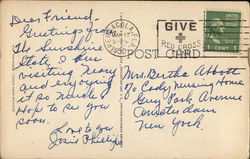 Dear Friend,
Greetings from
The Sunshine
State, I am
visiting Mary
and enjoying
it so much.
Hope to see you
soon.
Love to you
PENSACOLA, FLA.
GIVE
RED CROSS
1 CENT 1
POST CARD
Mrs. Bertha Abbott
c/o Cady Nursing Home
Guy Park Avenue
Amsterdam
New York.